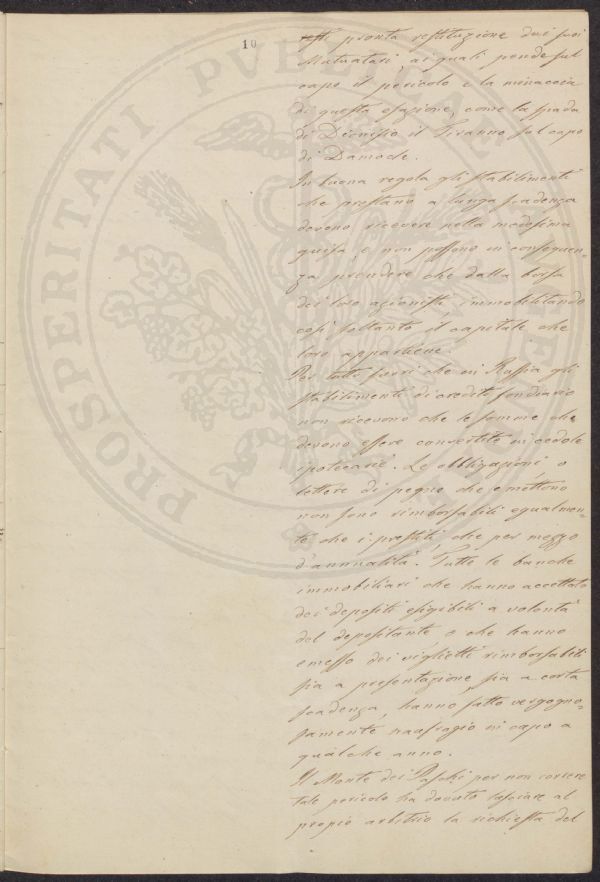 10
pronta restituzione dai suoi
Mutuatari, ai quali pende sul
capo il pericolo e la minaccia
di questa esazione, come la spada
di Dionisio il Tiranno sul capo
di Damocle.
In buona regola gli stabilimenti
che prestano a lunga scadenza
devono ricevere nella medesima
guisa, e non possono in conseguen-
za prendere che dalla borsa
dei loro azionisti, immobilitando
così soltanto il capitale che
loro appartiene.
Per tutti fuori che in Russia gli
stabilimenti di credito fondiario
non ricevono che le somme che
devono essere convertite in cedole
ipotecarie. Le obbligazioni, o
lettere di pegno che emettono
non sono rimborsabili egualmen-
te che i prestiti che per mezzo
d'annualità. Tutte le banche
immobiliari che hanno accettato
dei depositi esigibili a volontà
del depositante o che hanno
emesso dei viglietti rimborsabili
sia a presentazione, sia a corta
scadenza, hanno fatto vergogno-
samente naufragio in capo a
qualche anno.
Il Monte dei Paschi per non correre
tale pericolo ha dovuto lasciare al
propio arbitrio la richiesta del
PROSPERITATI PVBLICAE AVGENDAE